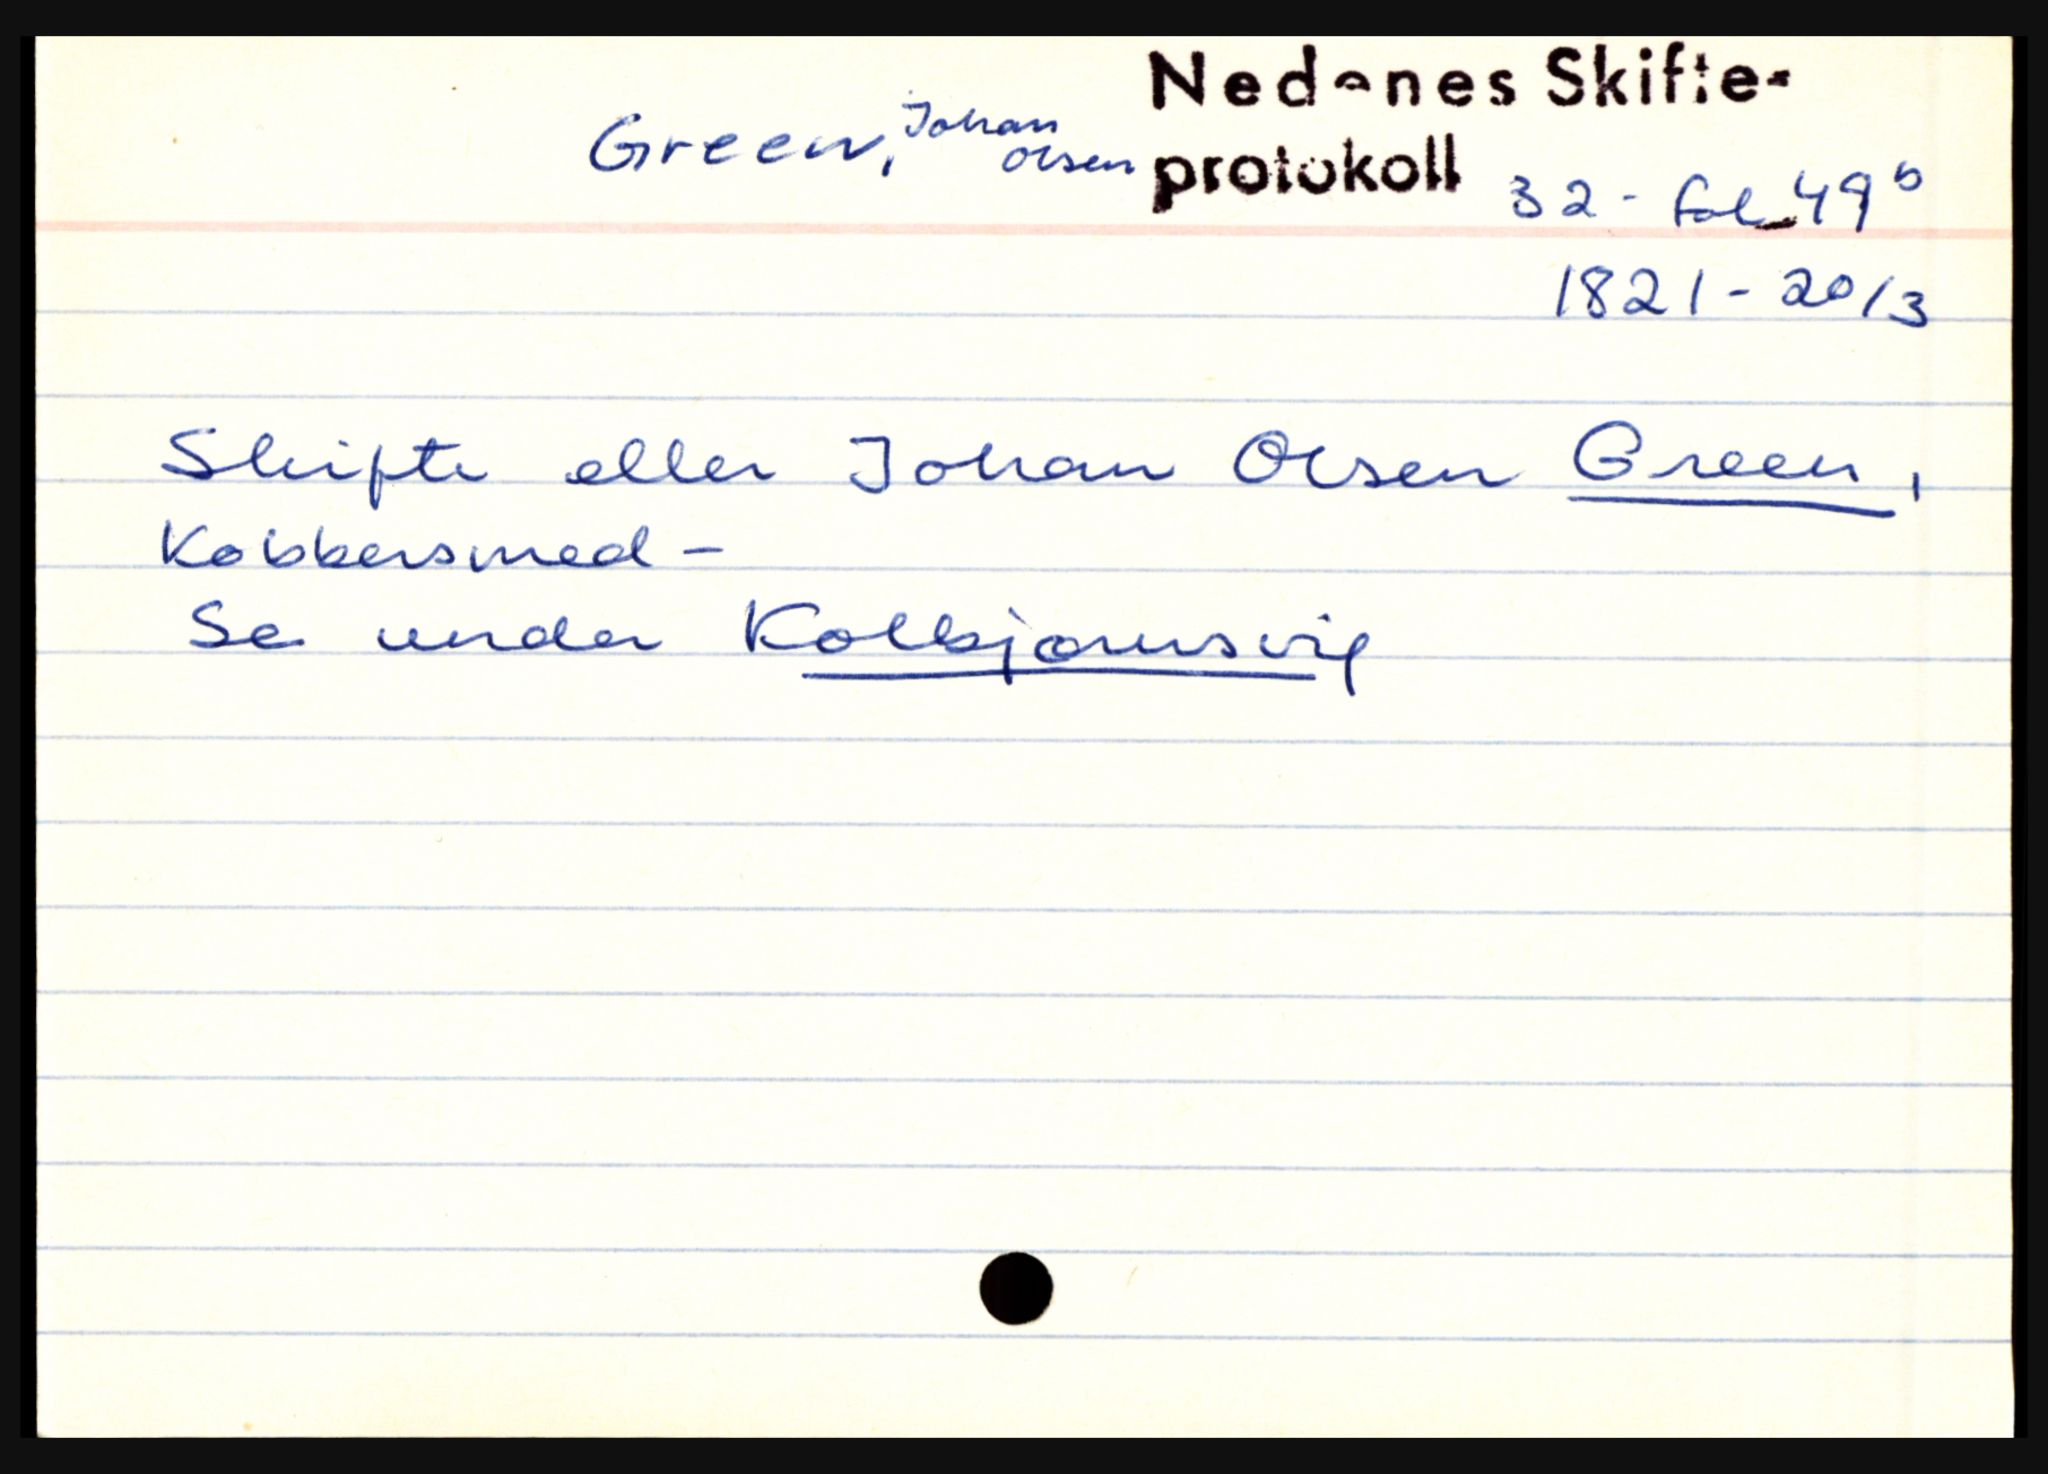 Nedenes Skifte-
Green, Johan Olsen protokoll 32 - fol 49 b
1821 - 20/3
Skifte eller Johan Olsen Green,
Kobbersmed -
Se under Kolbjørnsvig